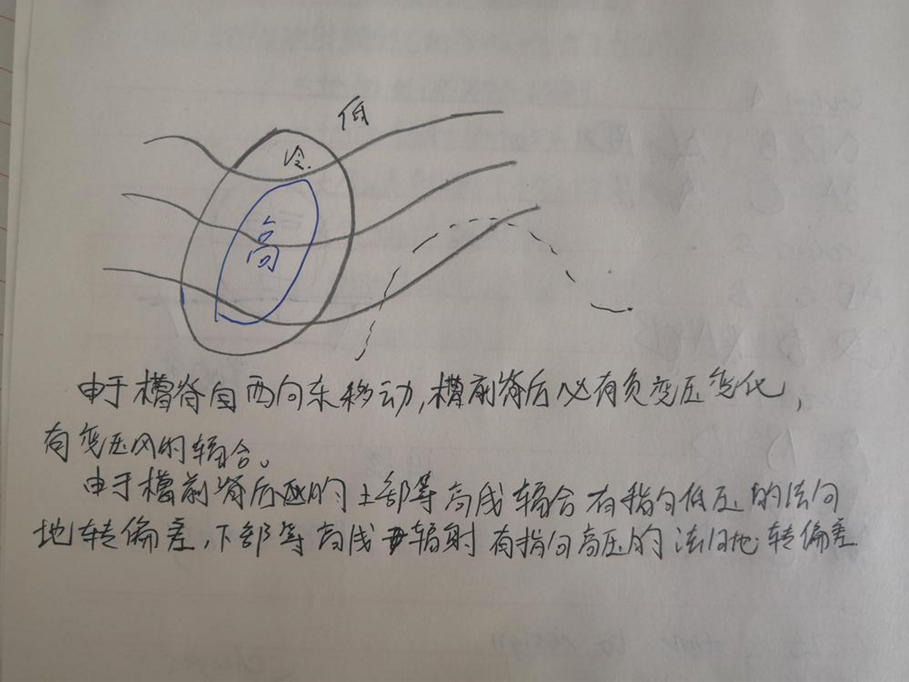 低
冷
高
由于槽脊自西向东移动,槽前脊后必有负变压变化,
有变压风的辐合。
由于槽前脊后区的上部等高线辐合有指向低压的法向
地转偏差,下部等高线辐射有指向高压的法向地转偏差